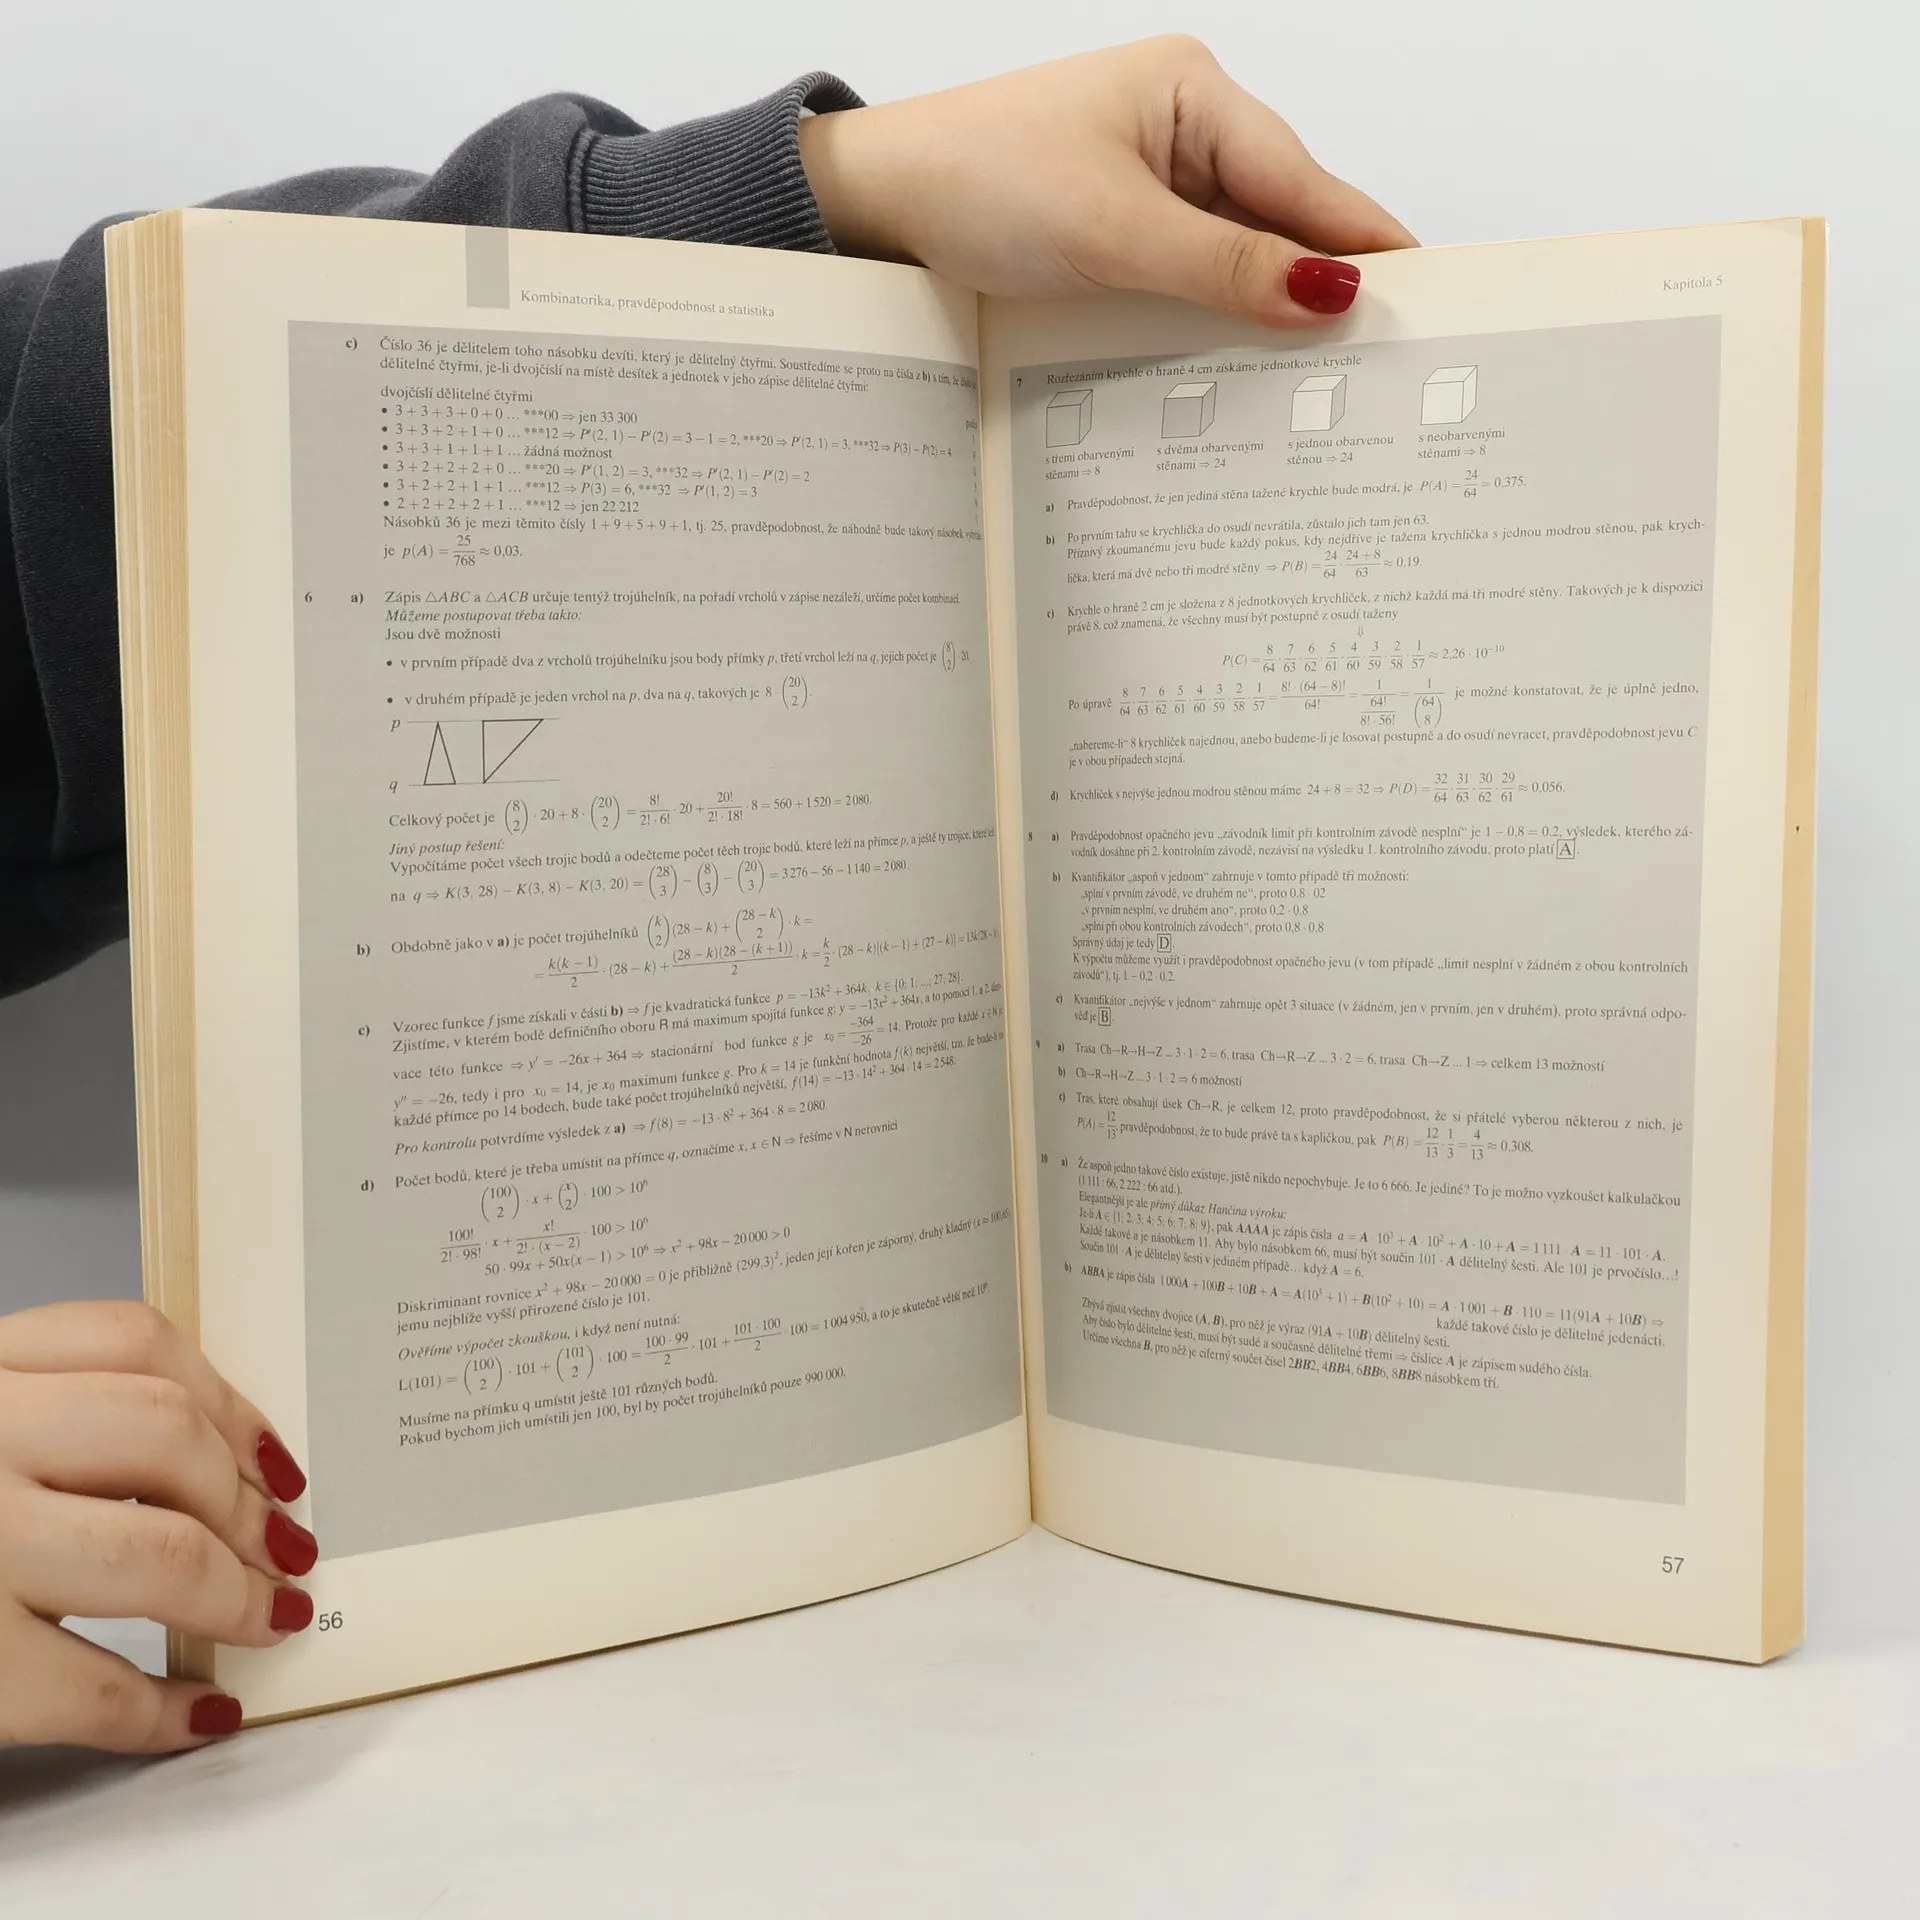 Kombinatorika, pravděpodobnost a statistika
c) Číslo 36 je dělitelem toho násobku devíti, který je dělitelný čtyřmi. Soustředíme se proto na čísla z b) s tím, že
dělitelné čtyřmi, je-li dvojčíslí na místě desítek a jednotek v jeho zápise dělitelné čtyřmi:
dvojčíslí dělitelné čtyřmi
• 3+3+3+0+0 ... ***00 ⇒ jen 33 300
• 3+3+2+1+0 ... ***12 ⇒ P'(2, 1) − P'(2) = 3 − 1 = 2, ***20 ⇒ P'(2, 1) = 3, ***32 ⇒ P(3) − P(2) = 4
• 3+3+1+1+1 ... žádná možnost
• 3+2+2+2+0 ... ***20 ⇒ P'(1, 2) = 3, ***32 ⇒ P'(2, 1) − P'(2) = 2
• 3+2+2+1+1 ... ***12 ⇒ P(3) = 6, ***32 ⇒ P'(1, 2) = 3
• 2+2+2+2+1 ... ***12 ⇒ jen 22 212
Násobků 36 je mezi těmito čísly 1+9+5+9+1, tj. 25, pravděpodobnost, že náhodně bude takový násobek
je p(A) = 25/768 ≈ 0,03.
6 a) Zápis △ABC a △ACB určuje tentýž trojúhelník, na pořadí vrcholů v zápise nezáleží, určíme počet kombinací.
Můžeme postupovat třeba takto:
Jsou dvě možnosti
• v prvním případě dva z vrcholů trojúhelníku jsou body přímky p, třetí vrchol leží na q, jejich počet je (8 2) · 20,
• v druhém případě je jeden vrchol na p, dva na q, takových je 8 · (20 2).
p
q
Celkový počet je (8 2) · 20 + 8 · (20 2) = 8!/(2! · 6!) · 20 + 20!/(2! · 18!) · 8 = 560 + 1 520 = 2 080.
Jiný postup řešení:
Vypočítáme počet všech trojic bodů a odečteme počet těch trojic bodů, které leží na přímce p, a ještě ty trojice, které leží
na q ⇒ K(3, 28) − K(3, 8) − K(3, 20) = (28 3) − (8 3) − (20 3) = 3 276 − 56 − 1 140 = 2 080.
b) Obdobně jako v a) je počet trojúhelníků (k 2)(28 − k) + (28 − k 2) · k =
= k(k − 1)/2 · (28 − k) + (28 − k)(28 − (k + 1))/2 · k = k/2 · (28 − k)[(k − 1) + (27 − k)] = 13k(28 −
c) Vzorec funkce f jsme získali v části b) ⇒ f je kvadratická funkce p = −13k² + 364k, k ∈ {0; 1; ...; 27; 28}.
Zjistíme, v kterém bodě definičního oboru R má maximum spojitá funkce g: y = −13x² + 364x, a to pomocí 1. a 2. deri-
vace této funkce ⇒ y' = −26x + 364 ⇒ stacionární bod funkce g je x₀ = −364/−26 = 14. Protože pro každé x ∈ N je
y'' = −26, tedy i pro x₀ = 14, je x₀ maximum funkce g. Pro k = 14 je funkční hodnota f(k) největší, tzn. že bude-li na
každé přímce po 14 bodech, bude také počet trojúhelníků největší, f(14) = −13 · 14² + 364 · 14 = 2 548.
Pro kontrolu potvrdíme výsledek z a) ⇒ f(8) = −13 · 8² + 364 · 8 = 2 080.
d) Počet bodů, které je třeba umístit na přímce q, označíme x, x ∈ N ⇒ řešíme v N nerovnici
(100 2) · x + (x 2) · 100 > 10⁶
100!/(2! · 98!) · x + x!/(2! · (x − 2)) · 100 > 10⁶
50 · 99x + 50x(x − 1) > 10⁶ ⇒ x² + 98x − 20 000 > 0
Diskriminant rovnice x² + 98x − 20 000 = 0 je přibližně (299,3)², jeden její kořen je záporný, druhý kladný (x ≈ 100,65),
jemu nejblíže vyšší přirozené číslo je 101.
Ověříme výpočet zkouškou, i když není nutná:
L(101) = (100 2) · 101 + (101 2) · 100 = 100 · 99/2 · 101 + 101 · 100/2 · 100 = 1 004 950, a to je skutečně větší než 10⁶.
Musíme na přímku q umístit ještě 101 různých bodů.
Pokud bychom jich umístili jen 100, byl by počet trojúhelníků pouze 990 000.
56
Kapitola 5
7 Rozřezáním krychle o hraně 4 cm získáme jednotkové krychle
s třemi obarvenými s dvěma obarvenými s jednou obarvenou s neobarvenými
stěnami ⇒ 8 stěnami ⇒ 24 stěnou ⇒ 24 stěnami ⇒ 8
a) Pravděpodobnost, že jen jediná stěna tažené krychle bude modrá, je P(A) = 24/64 = 0,375.
b) Po prvním tahu se krychlička do osudí nevrátila, zůstalo jich tam jen 63.
Příznivý zkoumanému jevu bude každý pokus, kdy nejdříve je tažena krychlička s jednou modrou stěnou, pak krych-
lička, která má dvě nebo tři modré stěny ⇒ P(B) = 24/64 · (24 + 8)/63 ≈ 0,19.
c) Krychle o hraně 2 cm je složena z 8 jednotkových krychliček, z nichž každá má tři modré stěny. Takových je k dispozici
právě 8, což znamená, že všechny musí být postupně z osudí taženy
⇓
P(C) = 8/64 · 7/63 · 6/62 · 5/61 · 4/60 · 3/59 · 2/58 · 1/57 ≈ 2,26 · 10⁻¹⁰
Po úpravě 8/64 · 7/63 · 6/62 · 5/61 · 4/60 · 3/59 · 2/58 · 1/57 = 8! · (64 − 8)!/64! = 1/(64!/(8! · 56!)) = 1/(64 8) je možné konstatovat, že je úplně jedno,
„nabereme-li“ 8 krychliček najednou, anebo budeme-li je losovat postupně a do osudí nevracet, pravděpodobnost jevu C
je v obou případech stejná.
d) Krychliček s nejvýše jednou modrou stěnou máme 24 + 8 = 32 ⇒ P(D) = 32/64 · 31/63 · 30/62 · 29/61 ≈ 0,056.
8 a) Pravděpodobnost opačného jevu „závodník limit při kontrolním závodě nesplní“ je 1 − 0,8 = 0,2, výsledek, kterého zá-
vodník dosáhne při 2. kontrolním závodě, nezávisí na výsledku 1. kontrolního závodu, proto platí A.
b) Kvantifikátor „aspoň v jednom“ zahrnuje v tomto případě tři možnosti:
„splní v prvním závodě, ve druhém ne“, proto 0,8 · 02
„v prvním nesplní, ve druhém ano“, proto 0,2 · 0,8
„splní při obou kontrolních závodech“, proto 0,8 · 0,8
Správný údaj je tedy D.
K výpočtu můžeme využít i pravděpodobnost opačného jevu (v tom případě „limit nesplní v žádném z obou kontrolních
závodů“), tj. 1 − 0,2 · 0,2.
c) Kvantifikátor „nejvýše v jednom“ zahrnuje opět 3 situace (v žádném, jen v prvním, jen v druhém), proto správná odpo-
věď je B.
9 a) Trasa Ch→R→H→Z ... 3 · 1 · 2 = 6, trasa Ch→R→Z ... 3 · 2 = 6, trasa Ch→Z ... 1 ⇒ celkem 13 možností
b) Ch→R→H→Z ... 3 · 1 · 2 ⇒ 6 možností
c) Tras, které obsahují úsek Ch→R, je celkem 12, proto pravděpodobnost, že si přátelé vyberou některou z nich, je
P(A) = 12/13, pravděpodobnost, že to bude právě ta s kapličkou, pak P(B) = 12/13 · 1/3 = 4/13 ≈ 0,308.
10 a) Že aspoň jedno takové číslo existuje, jistě nikdo nepochybuje. Je to 6 666. Je jediné? To je možno vyzkoušet kalkulačkou
(1 111 : 66, 2 222 : 66 atd.).
Elegantnější je ale přímý důkaz Hančina výroku:
Je-li A ∈ {1; 2; 3; 4; 5; 6; 7; 8; 9}, pak AAAA je zápis čísla a = A · 10³ + A · 10² + A · 10 + A = 1 111 · A = 11 · 101 · A.
Každé takové a je násobkem 11. Aby bylo násobkem 66, musí být součin 101 · A dělitelný šesti. Ale 101 je prvočíslo...!
Součin 101 · A je dělitelný šesti v jediném případě... když A = 6.
b) ABBA je zápis čísla 1 000A + 100B + 10B + A = A(10³ + 1) + B(10² + 10) = A · 1 001 + B · 110 = 11(91A + 10B) ⇒
každé takové číslo je dělitelné jedenácti.
Zbývá zjistit všechny dvojice (A, B), pro něž je výraz (91A + 10B) dělitelný šesti.
Aby číslo bylo dělitelné šesti, musí být sudé a současně dělitelné třemi ⇒ číslice A je zápisem sudého čísla.
Určíme všechna B, pro něž je ciferný součet čísel 2BB2, 4BB4, 6BB6, 8BB8 násobkem tří.
57